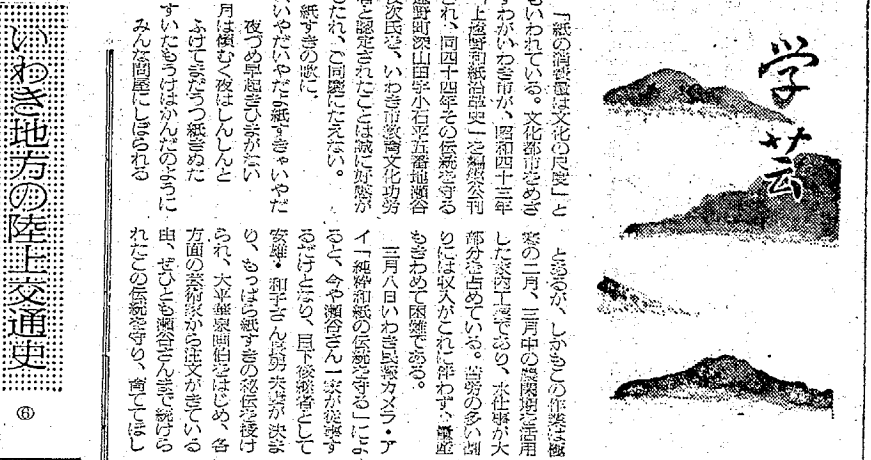 学芸
「紙の消費量は文化の尺度」と
もいわれている。文化都市をめざ
すわがいわき市が、昭和四十三年
「上遠野和紙沿革史」を編集公刊
され、同四十四年その伝統を守る
遠野町深山田字小石平五番地瀬谷
次氏を、いわき市教育文化功労
者と認定されたことは誠に好感が
もたれ、ご同慶にたえない。
紙すきの歌に、
いやだいやだよ紙すきゃいやだ
夜づめ早起きひまがない
月は傾むく夜はしんしんと
ふけてまだうつ紙きぬた
すいたもうけはかんだのように
みんな問屋にしぼられる
とあるが、しかもこの作業は極
寒の二月、三月中の農閑期を活用
した家内工業であり、水仕事が大
部分を占めている。苦労の多い割
りには収入がこれに伴わず、量産
もきわめて困難である。
三月八日いわき民報カメラ・ア
イ「純粋和紙の伝統を守る」によ
ると、今や瀬谷さん一家が従事す
るだけとなり、目下後継者として
安雄・和子さん長男夫妻が決ま
り、もっぱら紙すきの秘伝を授け
られ、大平華泉画伯をはじめ、各
方面の芸術家から注文がきている
由、ぜひとも瀬谷さんまで続けら
れたこの伝統を守り、育ててほし
いわき地方の陸上交通史
⑥